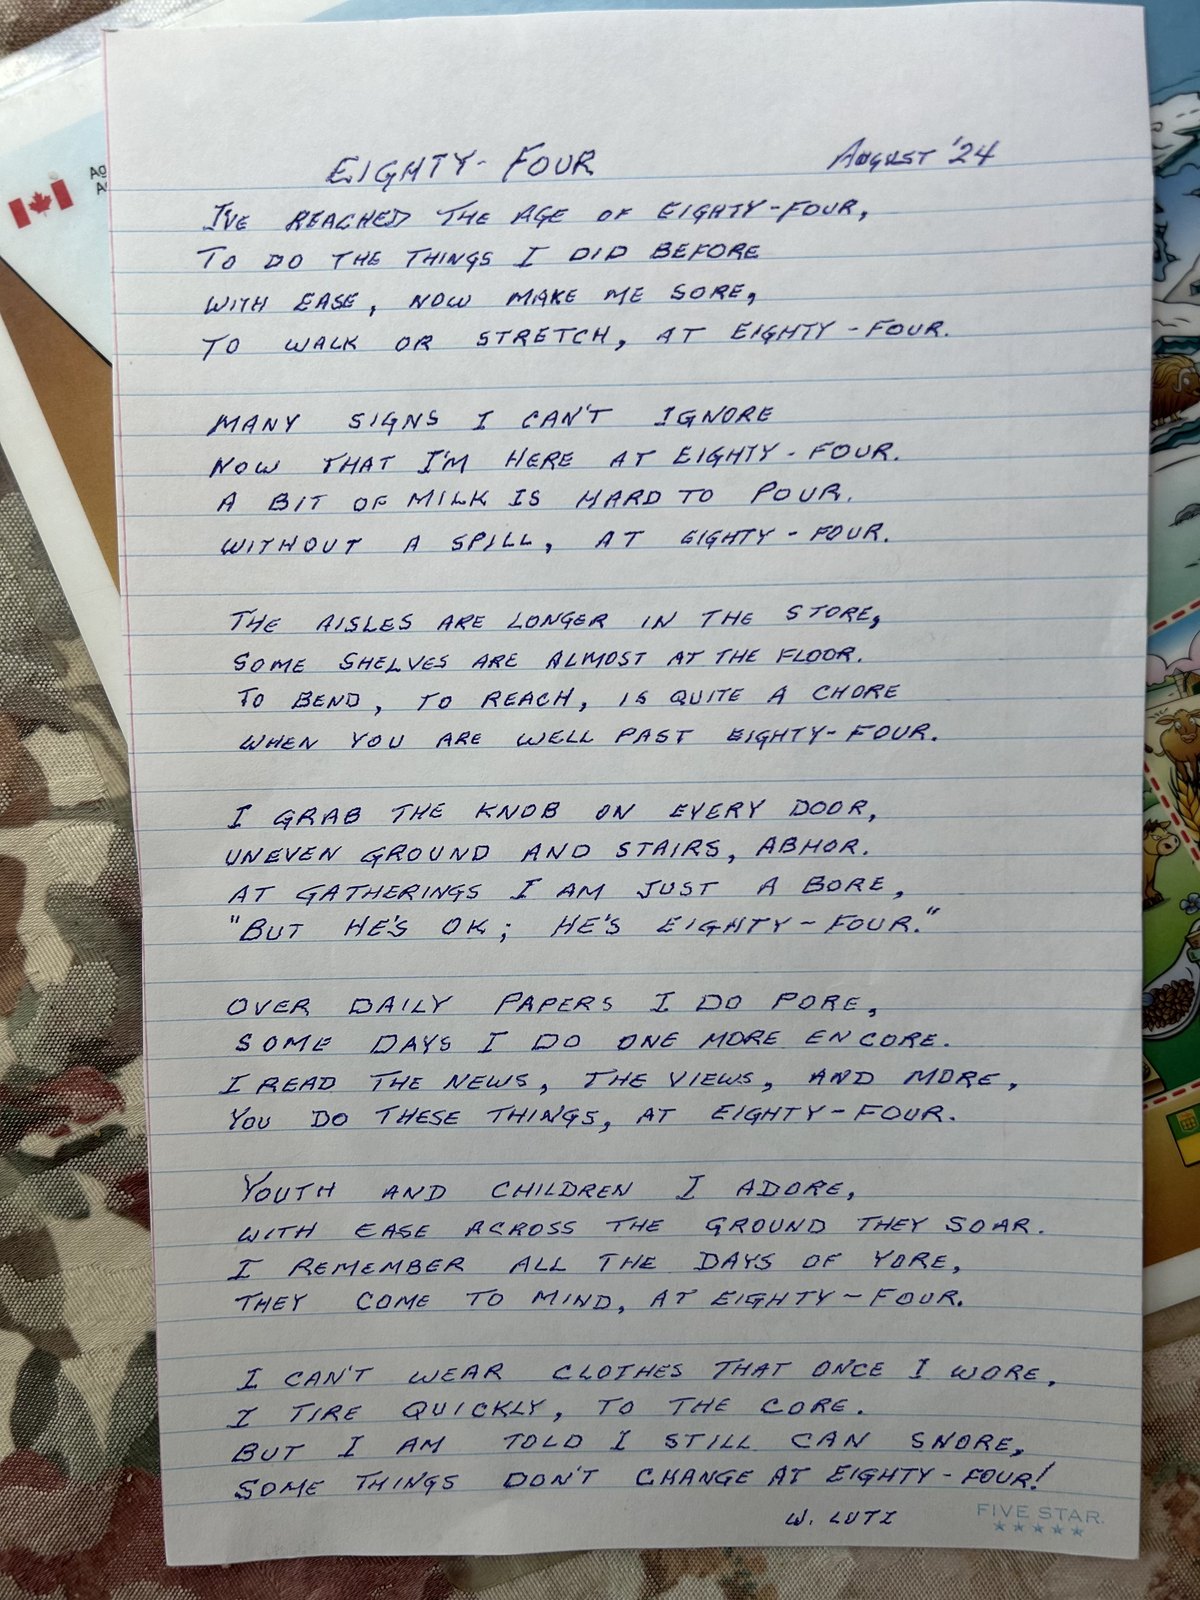 EIGHTY-FOUR AUGUST '24
I'VE REACHED THE AGE OF EIGHTY-FOUR,
TO DO THE THINGS I DID BEFORE
WITH EASE, NOW MAKE ME SORE,
TO WALK OR STRETCH, AT EIGHTY-FOUR.
MANY SIGNS I CAN'T IGNORE
NOW THAT I'M HERE AT EIGHTY-FOUR.
A BIT OF MILK IS HARD TO POUR.
WITHOUT A SPILL, AT EIGHTY-FOUR.
THE AISLES ARE LONGER IN THE STORE,
SOME SHELVES ARE ALMOST AT THE FLOOR.
TO BEND, TO REACH, IS QUITE A CHORE
WHEN YOU ARE WELL PAST EIGHTY-FOUR.
I GRAB THE KNOB ON EVERY DOOR,
UNEVEN GROUND AND STAIRS, ABHOR.
AT GATHERINGS I AM JUST A BORE,
"BUT HE'S OK; HE'S EIGHTY-FOUR."
OVER DAILY PAPERS I DO PORE,
SOME DAYS I DO ONE MORE ENCORE.
I READ THE NEWS, THE VIEWS, AND MORE,
YOU DO THESE THINGS, AT EIGHTY-FOUR.
YOUTH AND CHILDREN I ADORE,
WITH EASE ACROSS THE GROUND THEY SOAR.
I REMEMBER ALL THE DAYS OF YORE,
THEY COME TO MIND, AT EIGHTY-FOUR.
I CAN'T WEAR CLOTHES THAT ONCE I WORE,
I TIRE QUICKLY, TO THE CORE.
BUT I AM TOLD I STILL CAN SNORE,
SOME THINGS DON'T CHANGE AT EIGHTY-FOUR!
W. LUTZ
FIVE STAR.